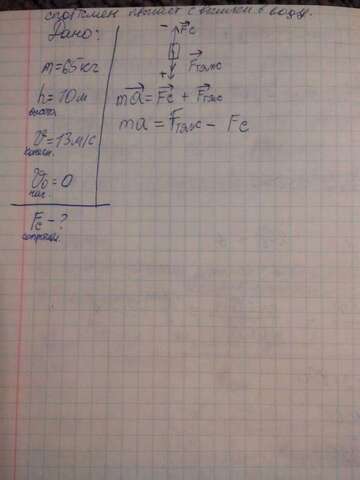 спортсмен прыгает с вышки в воду.
Дано:
m=65кг
h=10м
высота
V=13м/с
конечн.
V₀=0
нач.
Fc-?
сопротивл.
- Fc
Fтяж
+
ma = Fc + Fтяж
ma = Fтяж - Fc